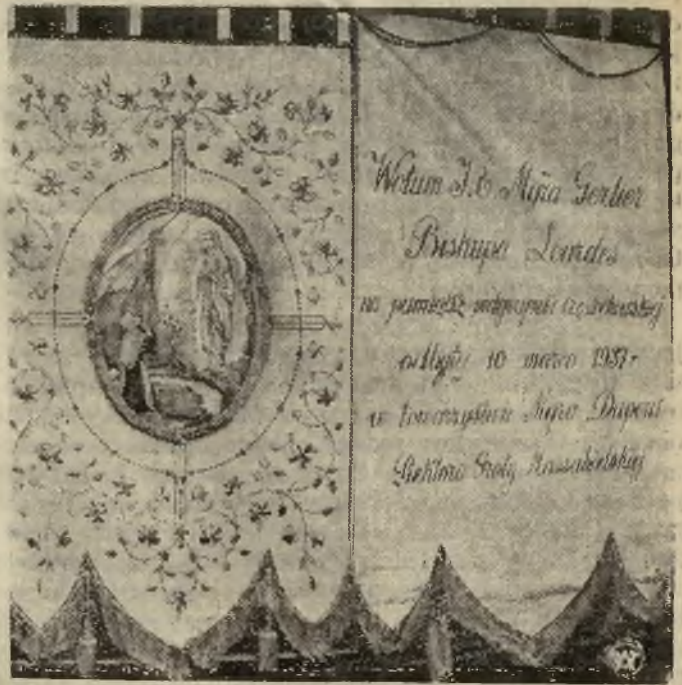 Wotum J. E. Mgra Gerlier
Biskupa Lourdes
na pamiątkę pielgrzymki częstochowskiej
odbytej 10 marca 1937 r
w towarzystwie Mgra Dupont
Rektora Groty Massabielskiej